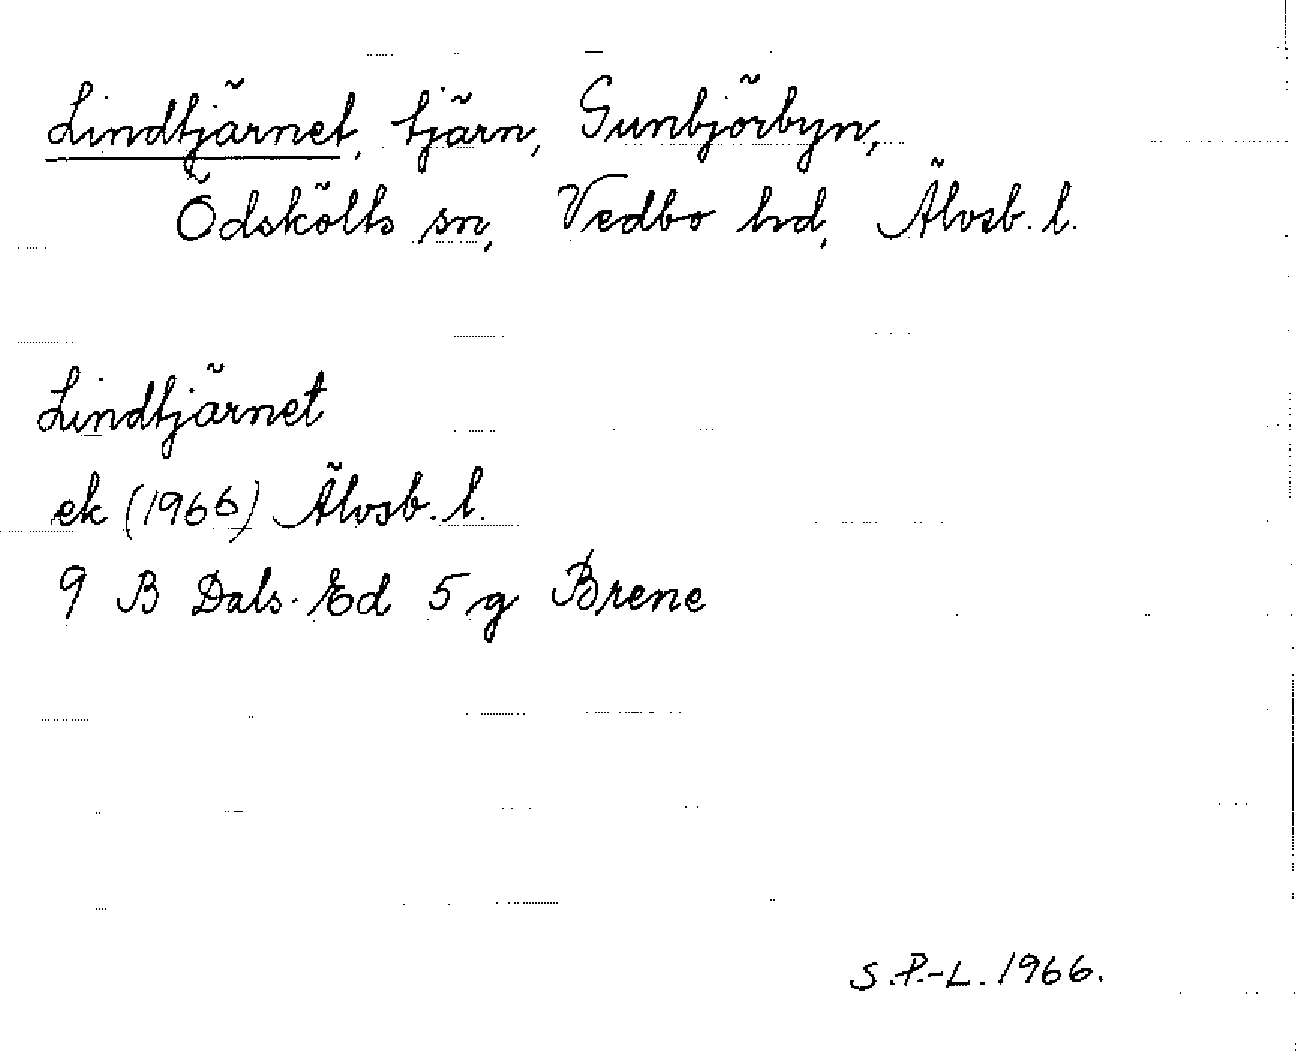 Lindtjärnet, tjärn, Gunbjörbyn,
Ödskölts sn, Vedbo hd, Älvsb. l.
Lindtjärnet
ek (1966) Älvsb. l.
9 B Dals-Ed 5 g Brene
S.P.-L. 1966.